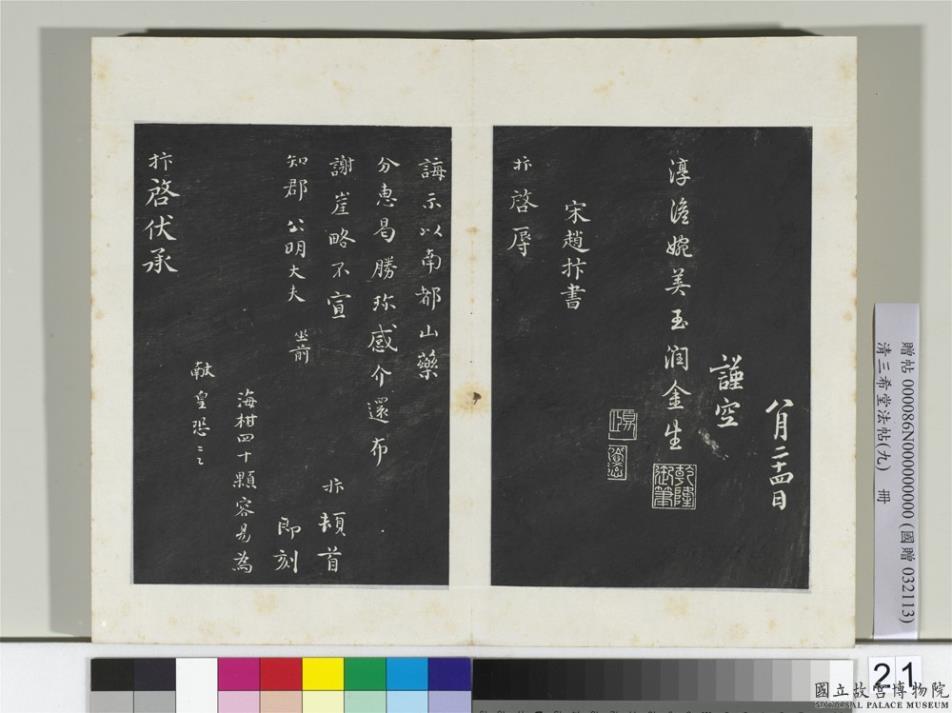 八月二十四日
謹空
淳澹婉美玉潤金生
乾隆御筆
宋趙抃書
抃啓辱
誨示以南都山藥
分惠曷勝珎感介還布
謝崖略不宣
抃頓首
知郡公明大夫 坐前
即刻
海柑四十顆容易為
獻皇恐〻
抃啓伏承
贈帖 000086N000000000 (國贈 032113)
清三希堂法帖(九) 冊
21
國立故宮博物院
NATIONAL PALACE MUSEUM